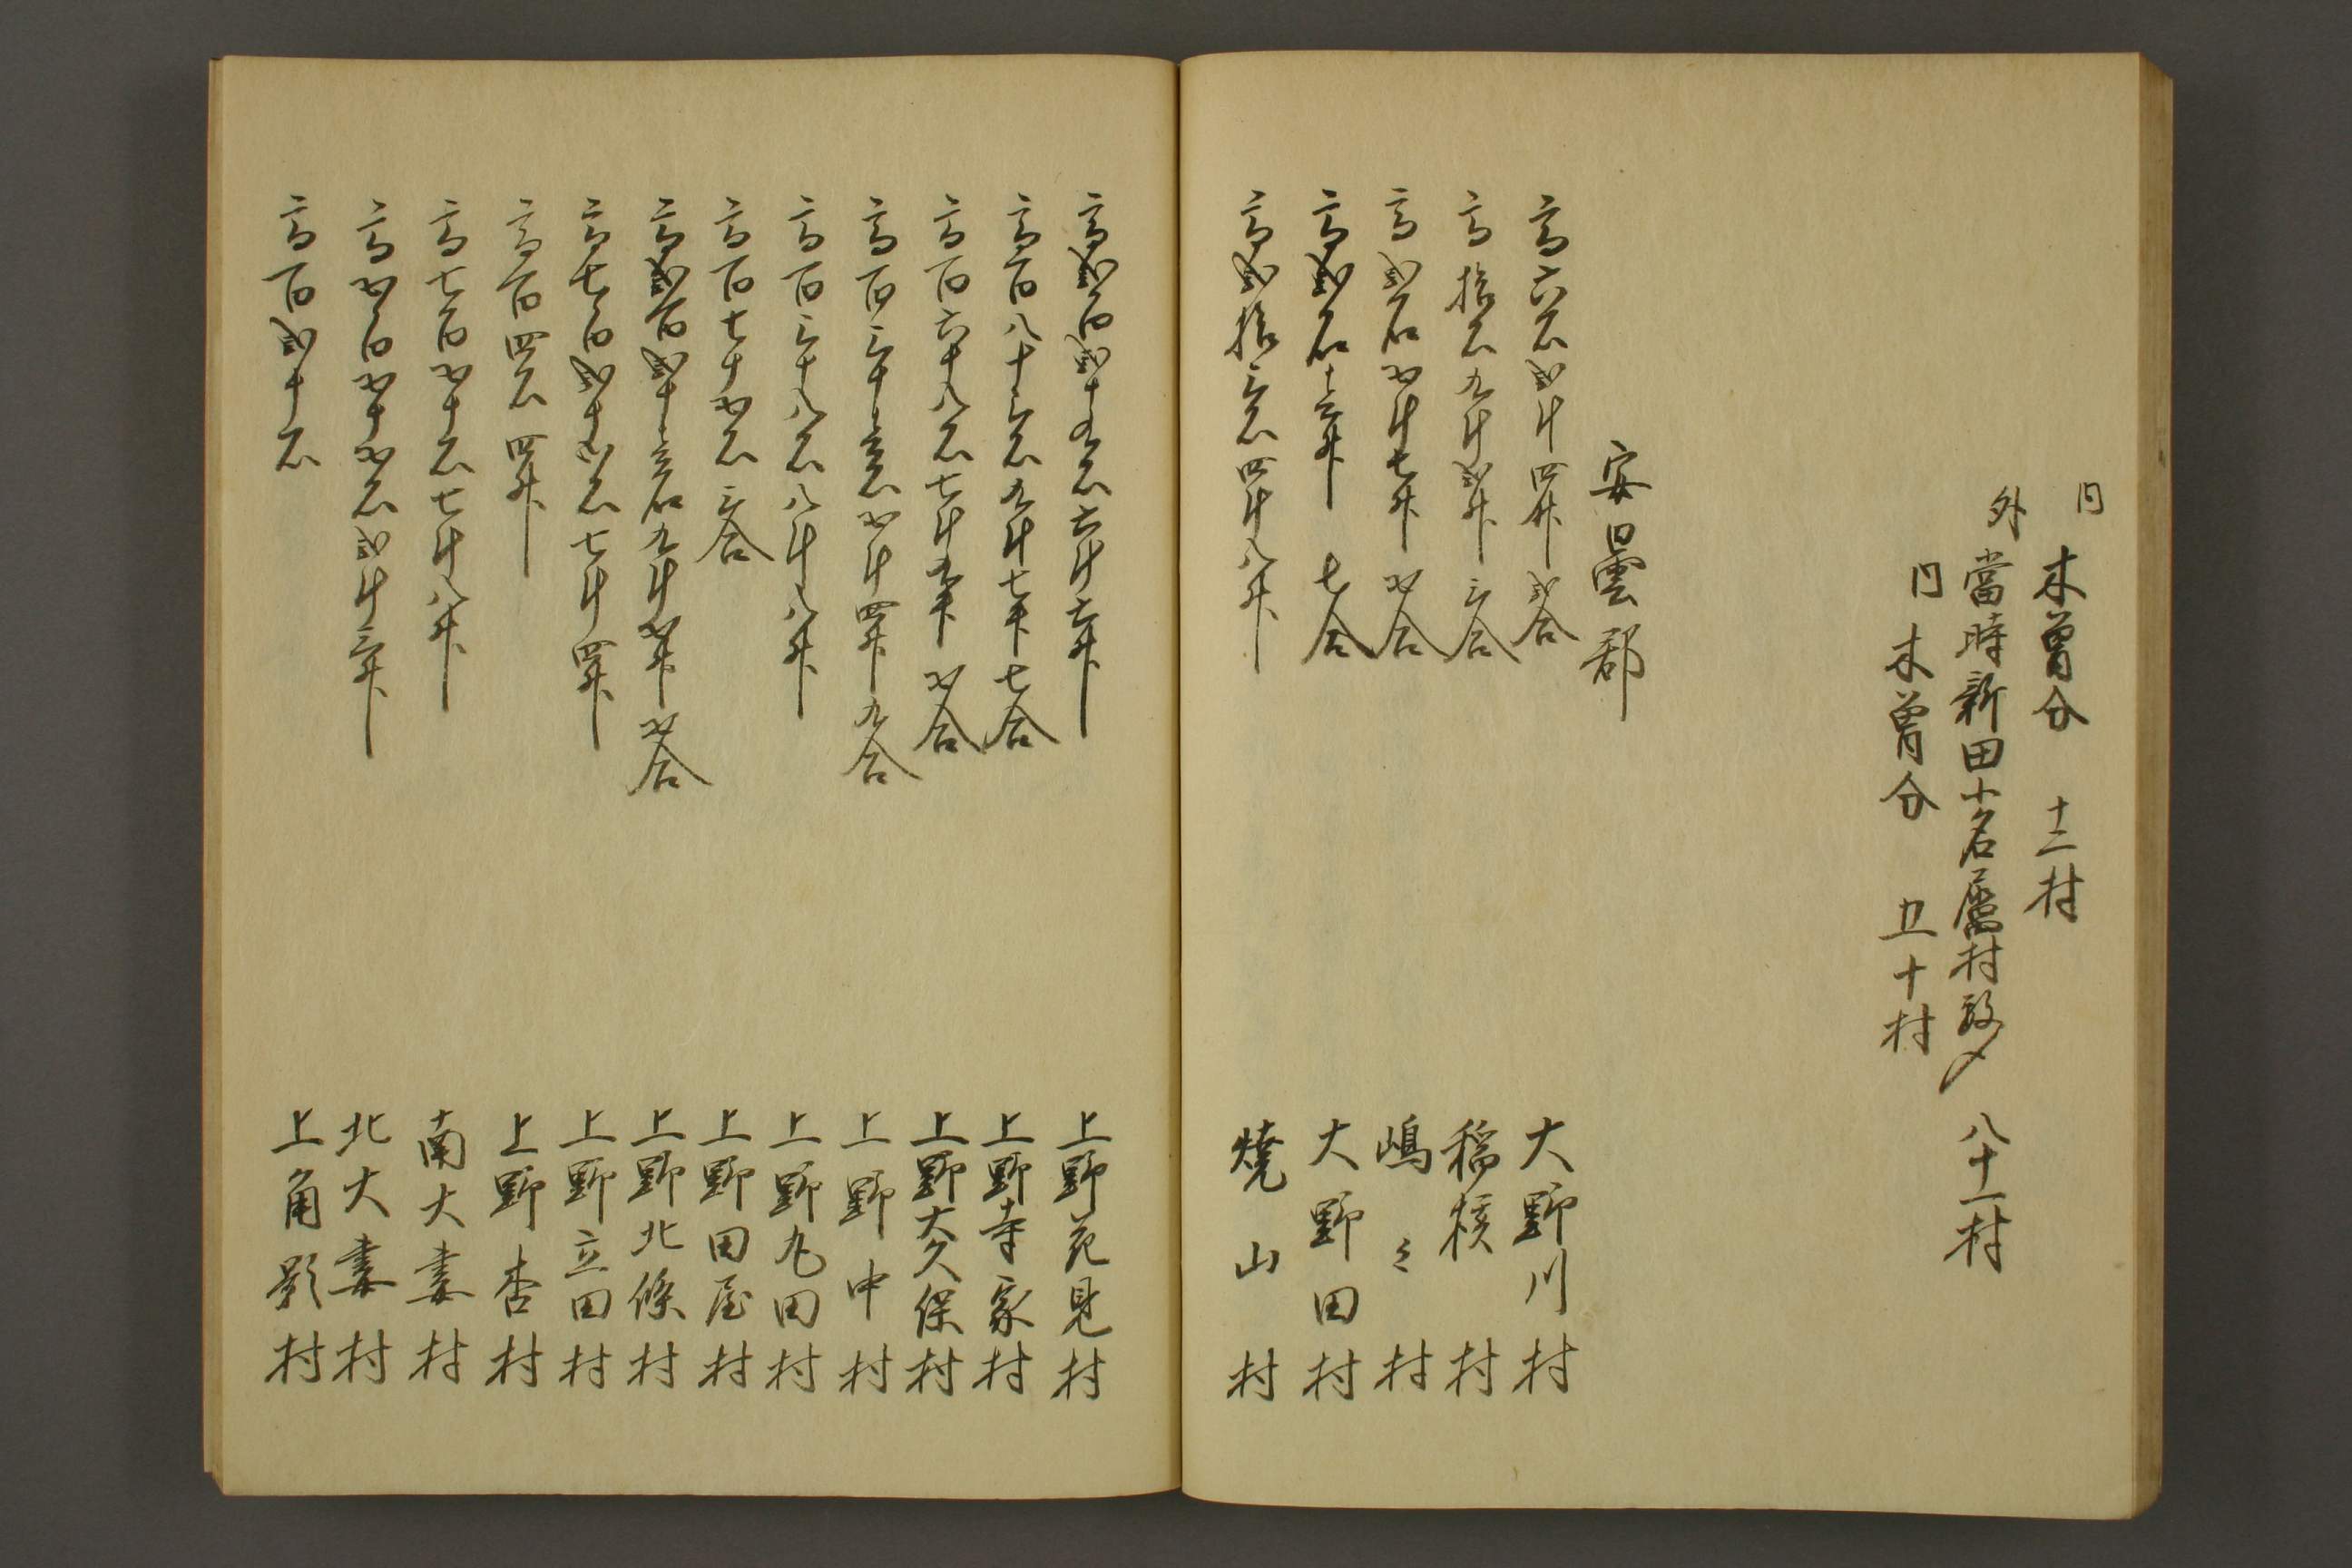 内
木曽分　十二村
外
當時新田小名屬村數〆　八十一村
内
木曽分　五十村
安曇郡
高六石弐斗四升弐合　大野川村
高拾石九斗弐升三合　稲核村
高弐石五斗七升五合　嶋々村
高弐石三升七合　大野田村
高弐拾三石四斗八升　焼山村
高弐百弐十五石六斗六升　上野花見村
高百八十三石九斗七升七合　上野寺家村
高百六十八石七斗五升五合　上野大久保村
高百三十三石五斗四升九合　上野中村
高百三十八石八斗八升　上野丸田村
高百七十五石三合　上野田屋村
高弐百弐十三石九斗五升五合　上野北條村
高七百弐十五石七斗四升　上野立田村
高百四石四升　上野杏村
高七百五十石七斗八升　南大妻村
高五百五十五石弐斗三升　北大妻村
高百弐十石　上角影村